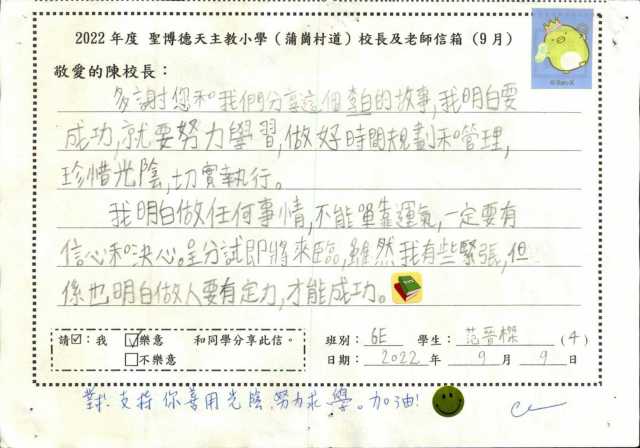 2022 年度 聖博德天主教小學（蒲崗村道）校長及老師信箱（9月）
敬愛的陳校長：
多謝您和我們分享這個李白的故事,我明白要
成功,就要努力學習,做好時間規劃和管理,
珍惜光陰,切實執行。
我明白做任何事情,不能單靠運氣,一定要有
信心和決心。呈分試即將來臨,雖然我有些緊張,但
係也明白做人要有定力,才能成功。
請☑：我 ☑樂意 和同學分享此信。 班別： 6E 學生： 范晉樑 (4)
□不樂意 日期： 2022 年 9 月 9 日
對!支持你善用光陰,努力求學。加油!